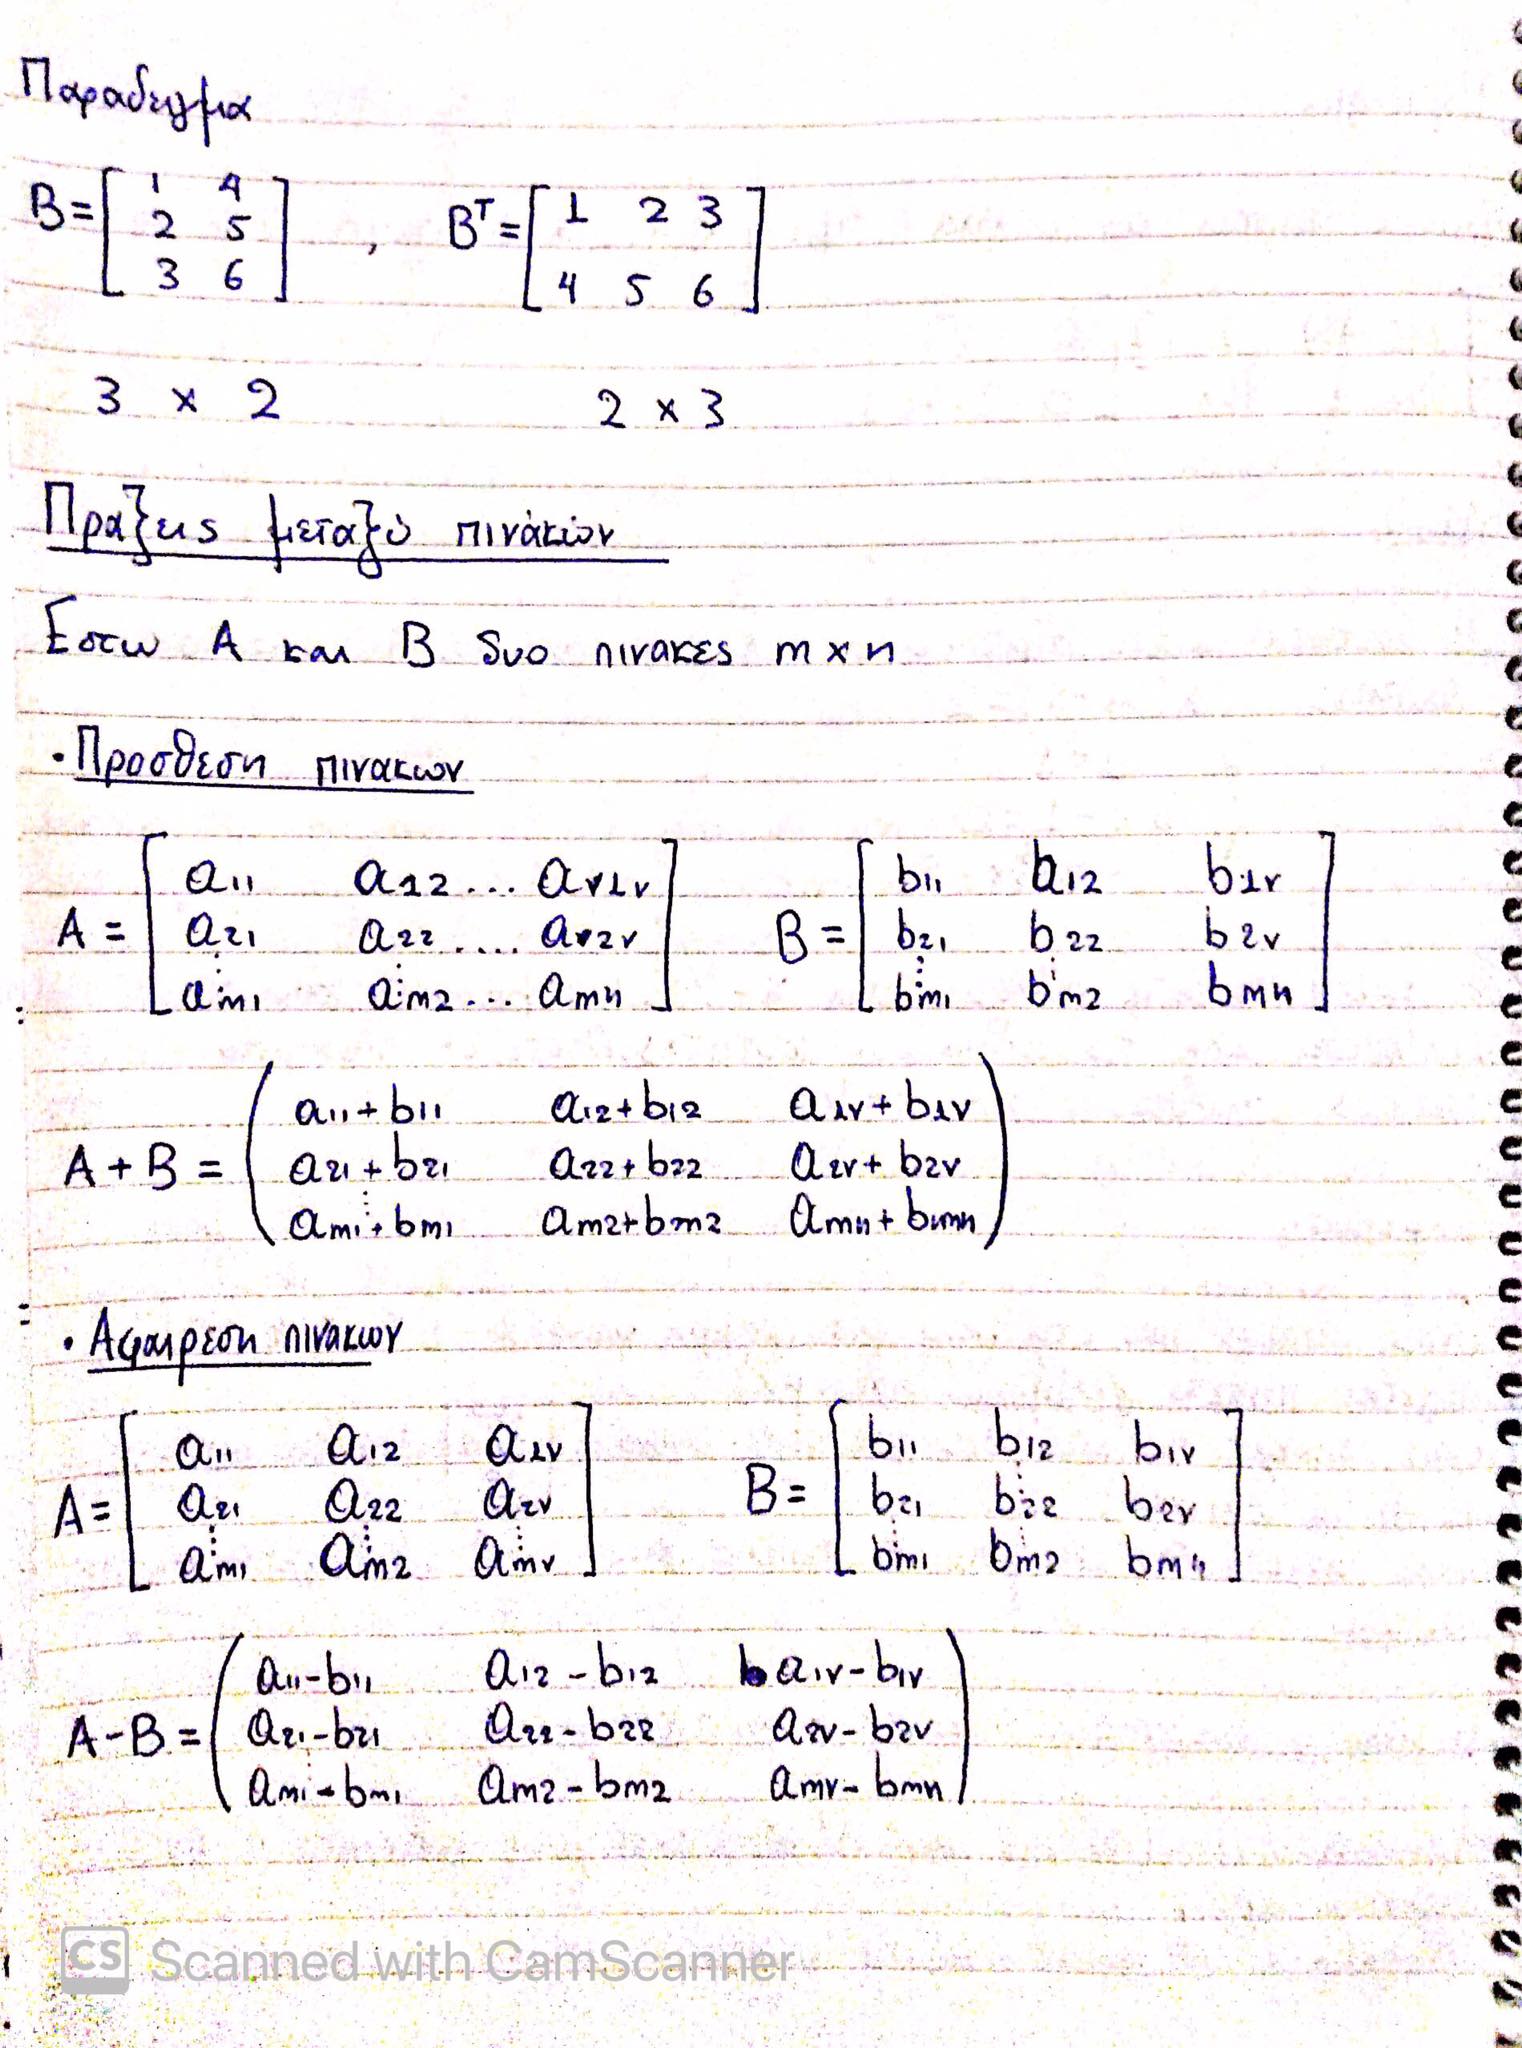 Παραδειγμα
B = [ 1 4 , Bᵀ = [ 1 2 3
2 5
3 6 ] 4 5 6 ]
3 x 2 2 x 3
Πράξεις μεταξύ πινάκων
Εστω A και B δυο πινακες m x n
· Προσθεση πινακων
a11 a12 ... aν1ν b11 a12 b1ν
A = [ a21 a22 .... aν2ν ] B = [ b21 b22 b2ν ]
am1 am2 ... amn bm1 bm2 bmn
a11+b11 a12+b12 a1ν+b1ν
A + B = ( a21+b21 a22+b22 a2ν+b2ν )
am1+bm1 am2+bm2 amn+bmn
· Αφαιρεση πινακων
a11 a12 a1ν b11 b12 b1ν
A = [ a21 a22 a2ν ] B = [ b21 b22 b2ν ]
am1 am2 amν bm1 bm2 bmn
a11-b11 a12-b12 a1ν-b1ν
A - B = ( a21-b21 a22-b22 a2ν-b2ν )
am1-bm1 am2-bm2 amν-bmn
CS Scanned with CamScanner